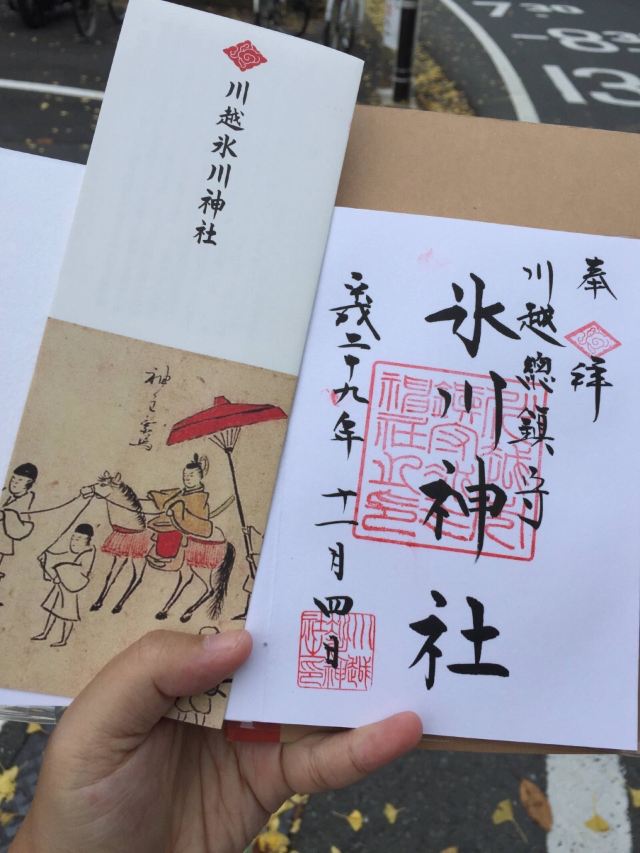 川越氷川神社
奉拝
川越總鎮守
氷川神社
平成二十九年十一月四日
神主乗馬
7:30
-8:30